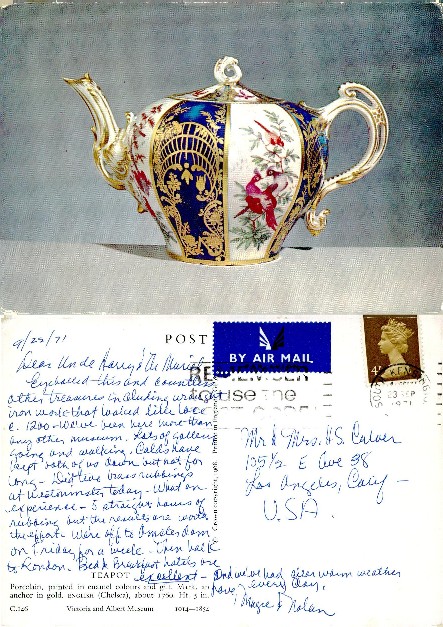 9/28/71
POST
BY AIR MAIL
Dear Uncle Harry & At.
Enjoyed this and countless
other treasures including
iron work that looked like lace
c. 1200 - We've been here more than
any other museum. Lots of gallery
going and walking. Colds have
kept both of us down but not for
long - Did five brass rubbings
at Westminster today - What an
experience - 5 straight hours of
rubbing but the results are worth
the effort. We're off to Amsterdam
on Friday for a week. Then back
to London. Bed & Breakfast hotels are
excellent - And we've had great warm weather
every day.
Love, Margie & Nolan
Mr & Mrs. H. S. Carver
105 1/2 E Ave 38
Los Angeles, Calif -
U.S.A.
4
SEP
1971
TEAPOT
Porcelain, painted in enamel colours and gilt. Mark, an
anchor in gold. ENGLISH (Chelsea), about 1760. Ht 5 in.
C.226 Victoria and Albert Museum 1014—1852